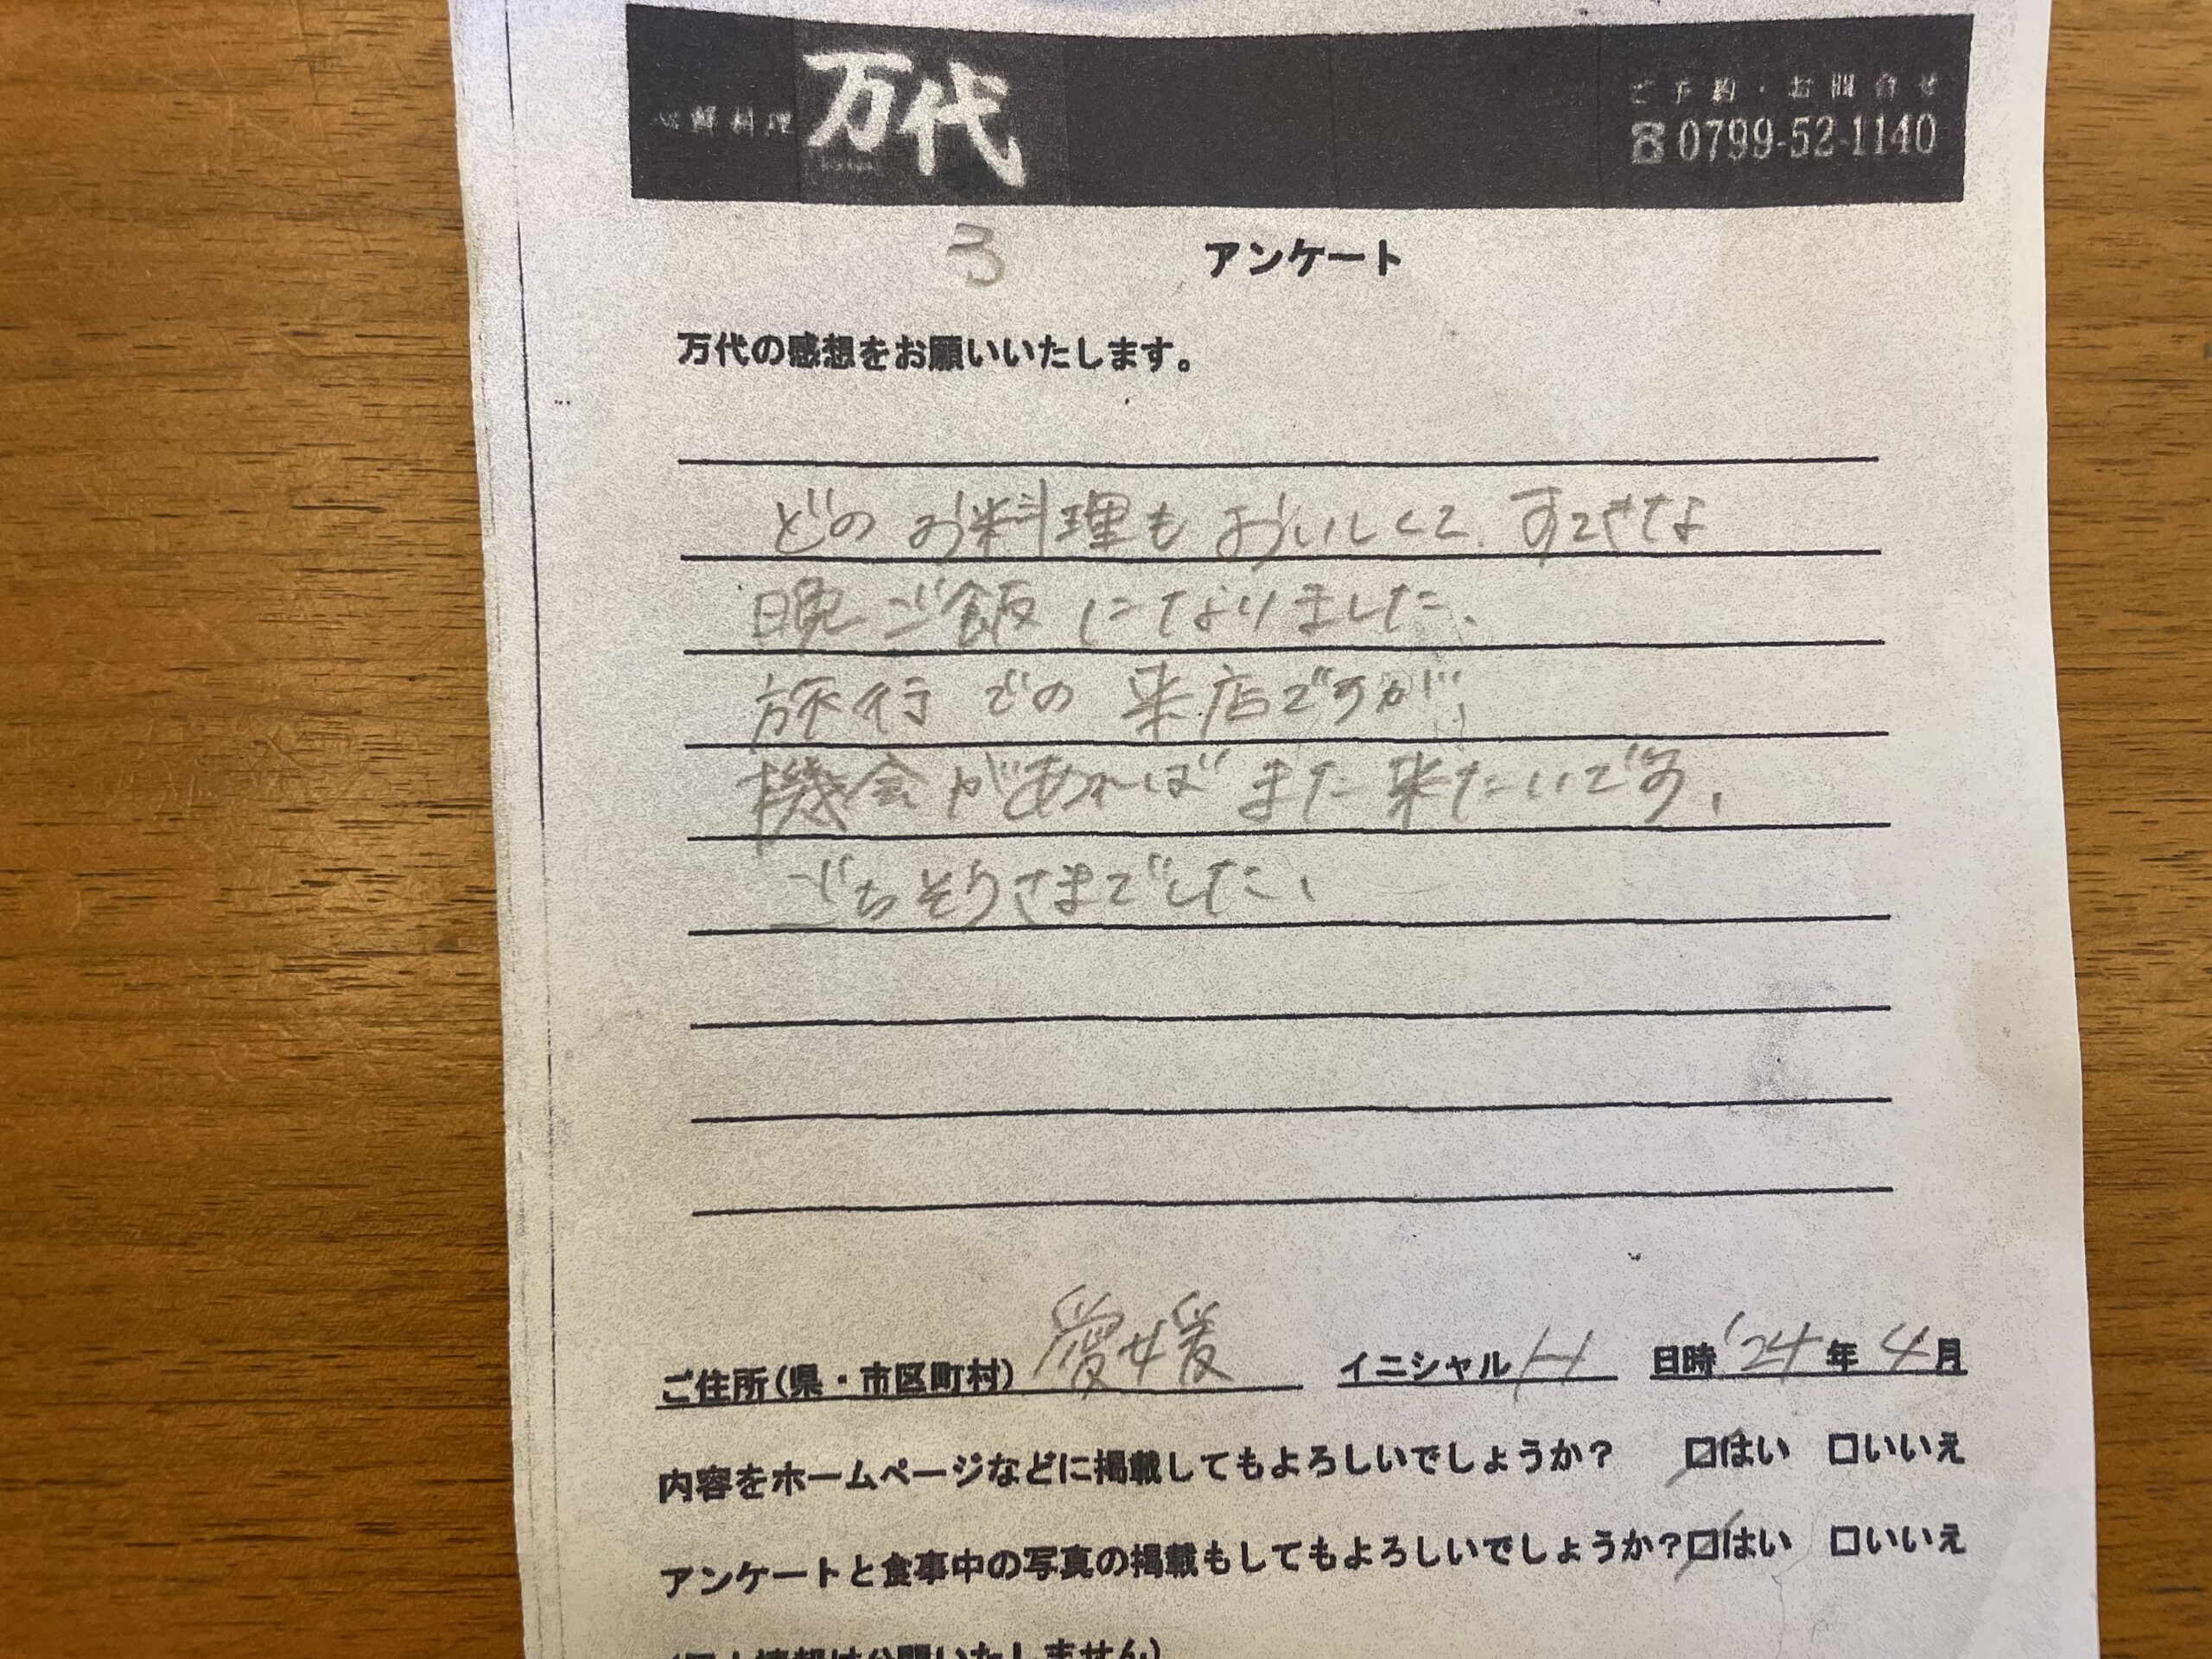 心鮮料理 万代
ご予約・お問合せ
☎0799-52-1140
3
アンケート
万代の感想をお願いいたします。
どのお料理もおいしくて、すてきな
晩ご飯になりました、
旅行での来店ですが、
機会があればまた来たいです、
ごちそうさまでした、
ご住所(県・市区町村) 愛媛 イニシャル H 日時 '24年 4月
内容をホームページなどに掲載してもよろしいでしょうか? ☑はい □いいえ
アンケートと食事中の写真の掲載もしてもよろしいでしょうか?☑はい □いいえ
(個人情報は公開いたしません)